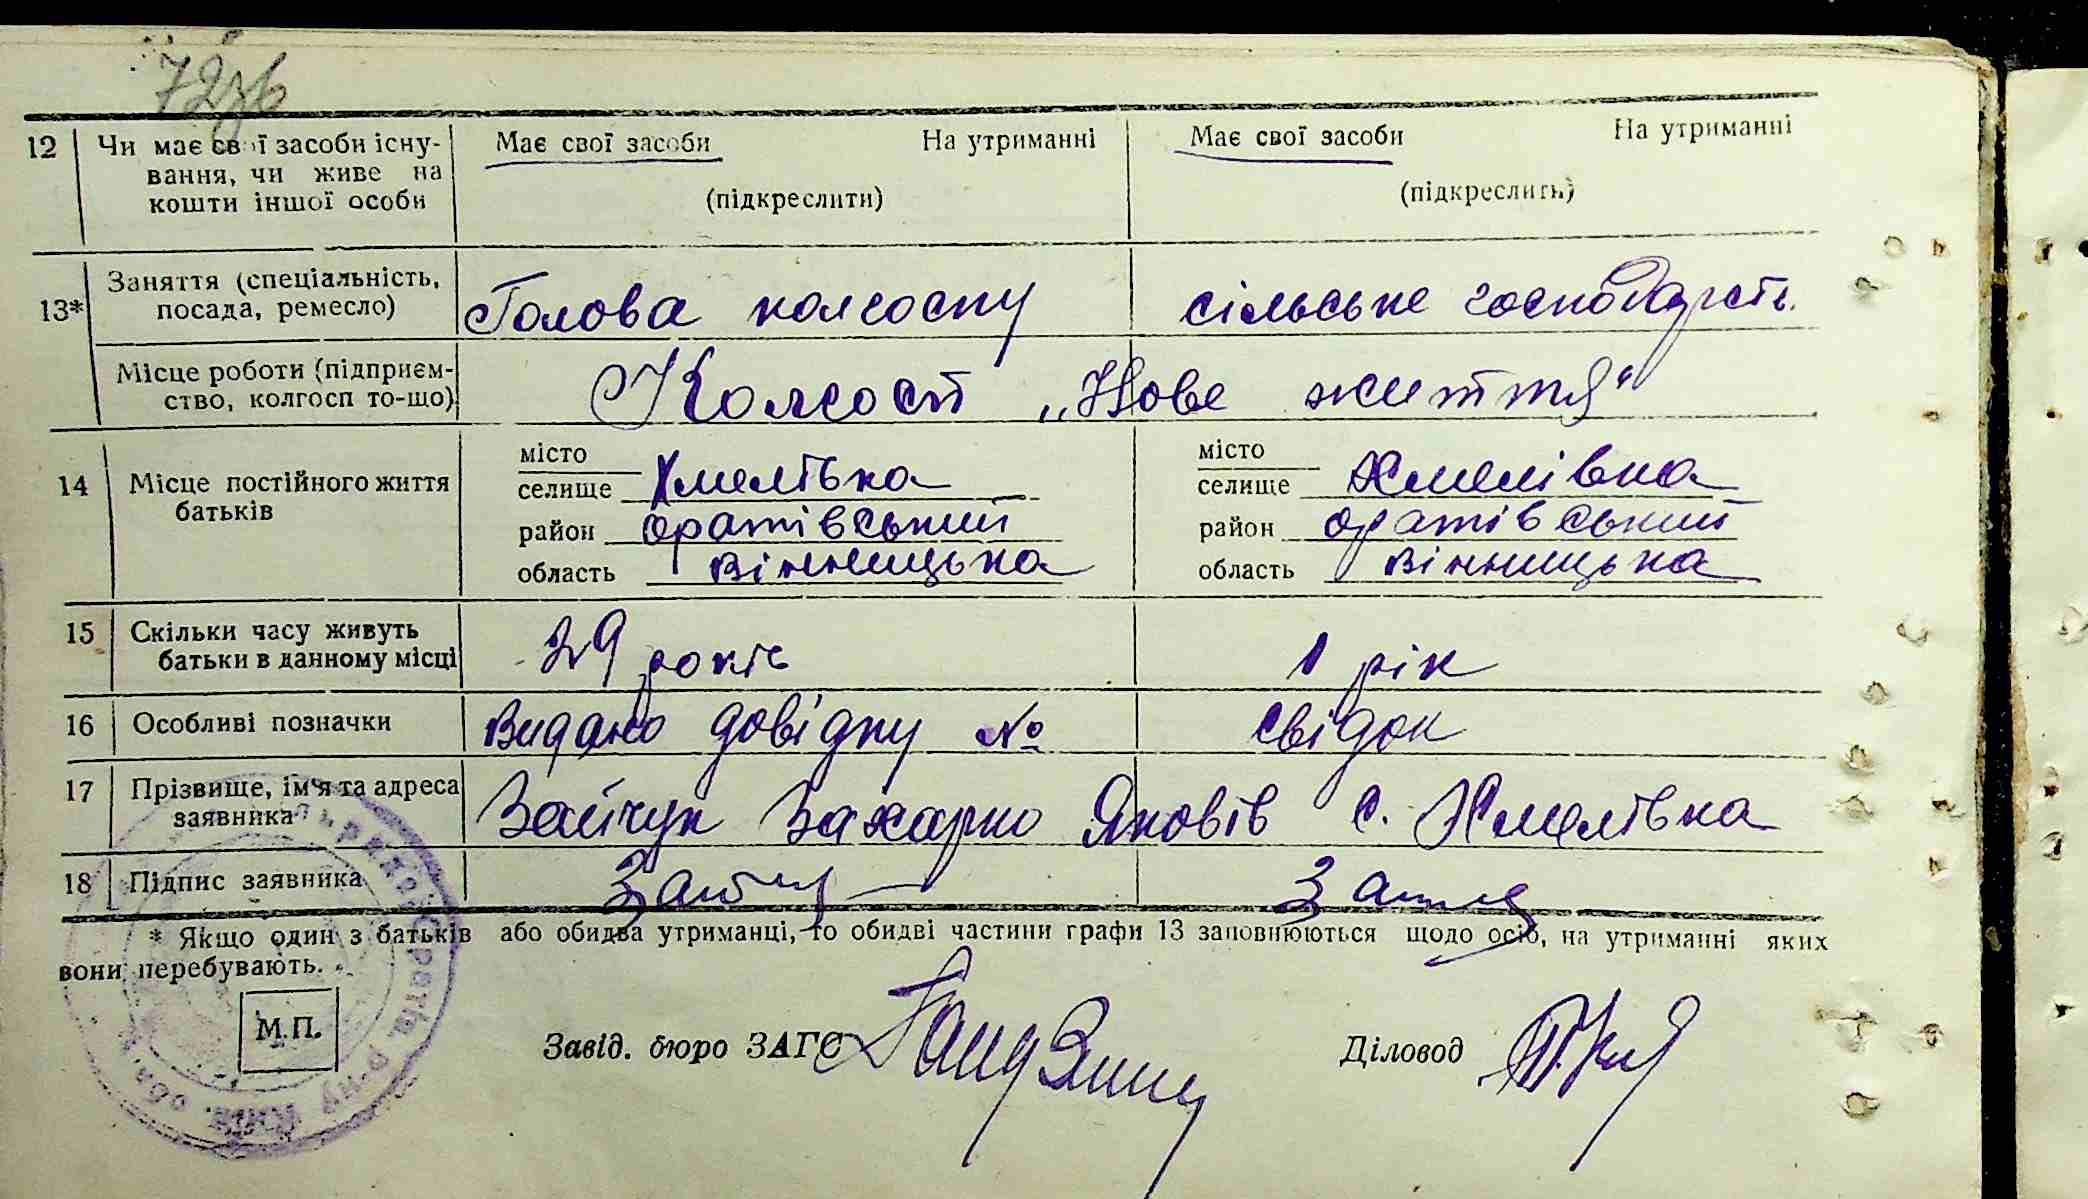 72зв
12 Чи має свої засоби існу- Має свої засоби На утриманні Має свої засоби На утриманні
вання, чи живе на
кошти іншої особи (підкреслити) (підкреслить)
13* Заняття (спеціальність,
посада, ремесло) Голова колгоспу сільське господарств.
Місце роботи (підприєм-
ство, колгосп то-що) Колгосп „Нове життя"
14 Місце постійного життя
батьків
місто місто
селище Хмелівка селище Хмелівка
район Оратівський район Оратівський
область Вінницька область Вінницька
15 Скільки часу живуть
батьки в данному місці 29 років 1 рік
16 Особливі позначки Видано довідку № свідок
17 Прізвище, ім'я та адреса
заявника Зайчук Захарко Яковів с. Хмелівка
18 Підпис заявника
* Якщо один з батьків або обидва утриманці, то обидві частини графи 13 заповнюються щодо осіб, на утриманні яких
вони перебувають.
М.П.
Завід. бюро ЗАГС Діловод